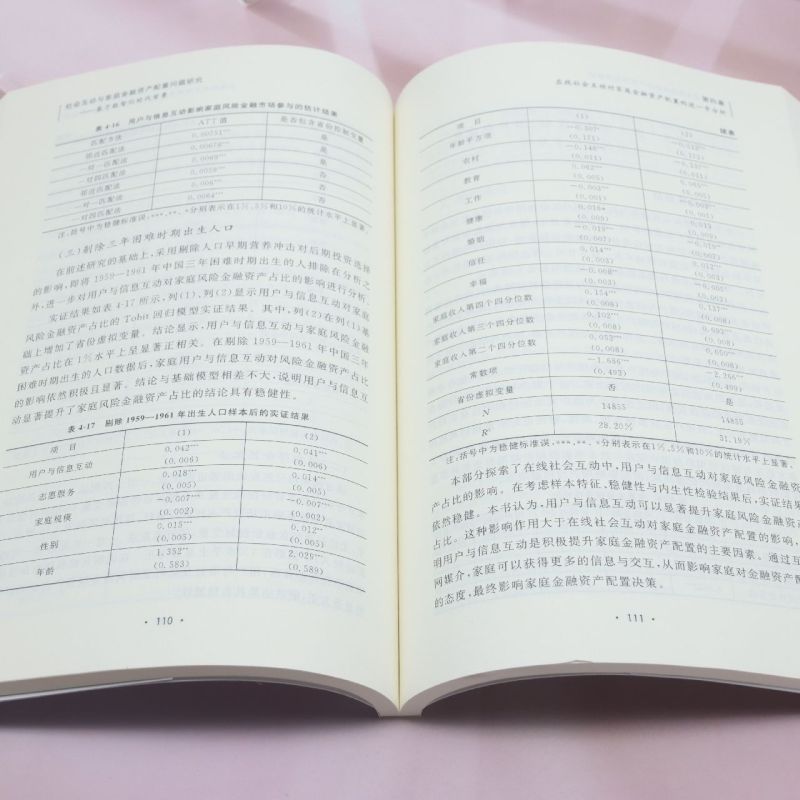 社会互动与家庭金融资产配置问题研究
——基于数智化时代背景
表 4-16 用户与信息互动影响家庭风险金融市场参与的估计结果
匹配方法 ATT 值 是否包含省份控制变量
邻近匹配法 0.00751*** 是
一对一匹配法 0.00678*** 是
一对四匹配法 0.0069*** 是
邻近匹配法 0.0058*** 否
一对一匹配法 0.006*** 否
一对四匹配法 0.0064*** 否
注:括号中为稳健标准误,***、**、*分别表示在1%、5%和10%的统计水平上显著。
(三)剔除三年困难时期出生人口
在前述研究的基础上,采用剔除人口早期营养冲击对后期投资选择
的影响,即将 1959—1961 年中国三年困难时期出生的人排除在分析之
外,进一步对用户与信息互动对家庭风险金融资产占比的影响进行分析。
实证结果如表 4-17 所示,列(1)、列(2)显示用户与信息互动对家庭
风险金融资产占比的 Tobit 回归模型实证结果。其中,列(2)在列(1)基
础上增加了省份虚拟变量。结论显示,用户与信息互动与家庭风险金融
资产占比在 1%水平上呈显著正相关。在剔除 1959—1961 年中国三年
困难时期出生的人口数据后,家庭用户与信息互动对风险金融资产占比
的影响依然积极且显著。结论与基础模型相差不大,说明用户与信息互
动显著提升了家庭风险金融资产占比的结论具有稳健性。
表 4-17 剔除 1959—1961 年出生人口样本后的实证结果
项 目 (1) (2)
用户与信息互动 0.042*** 0.041***
(0.006) (0.006)
志愿服务 0.018*** 0.014***
(0.005) (0.005)
家庭规模 −0.007*** −0.007***
(0.002) (0.002)
性别 0.015*** 0.012**
(0.005) (0.005)
年龄 1.352** 2.029***
(0.583) (0.589)
· 110 ·
第四章
在线社会互动对家庭金融资产配置的进一步分析
续表
项 目 (1) (2)
年龄平方项
(0.151)
农村
教育
(0.005) (0.005)
工作
健康
婚姻
信任
幸福
家庭收入第四个四分位数 0.154***
(0.008) (0.008)
家庭收入第三个四分位数 0.102***
(0.008) (0.008)
家庭收入第二个四分位数 0.053*** 0.050***
(0.008) (0.008)
常数项 −1.686*** −2.266***
(0.493) (0.499)
省份虚拟变量 否 是
N 14855 14855
R² 28.20% 31.19%
注:括号中为稳健标准误,***、**、*分别表示在1%、5%和10%的统计水平上显著。
本部分探索了在线社会互动中,用户与信息互动对家庭风险金融资
产占比的影响。在考虑样本特征、稳健性与内生性检验结果后,实证结果
依然稳健。本书认为,用户与信息互动可以显著提升家庭风险金融资产
占比。这种影响作用大于在线社会互动对家庭金融资产配置的影响,
明用户与信息互动是积极提升家庭金融资产配置的主要因素。通过互
网媒介,家庭可以获得更多的信息与交互,从而影响家庭对金融资产配
的态度,最终影响家庭金融资产配置决策。
· 111 ·